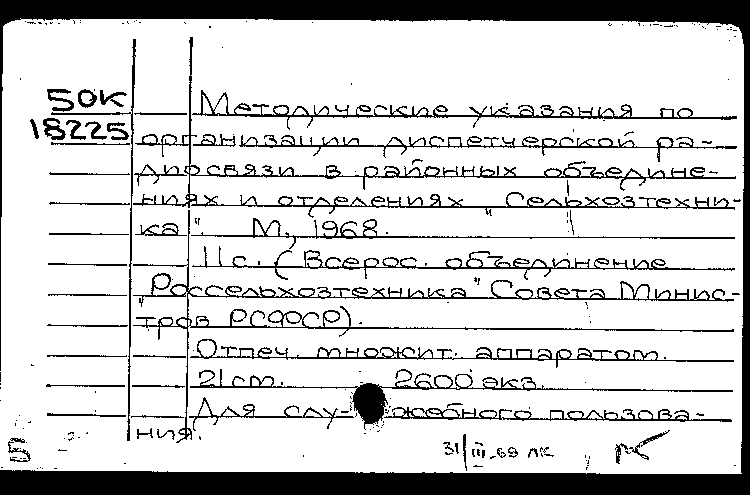 50К
18225
Методические указания по
организации диспетчерской ра-
диосвязи в районных объедине-
ниях и отделениях "Сельхозтехни-
ка". М., 1968.
11с. (Всерос. объединение
"Россельхозтехника" Совета Минис-
тров РСФСР).
Отпеч. множит. аппаратом.
21см. 2600 экз.
Для служебного пользова-
ния.
31/III-69 ЛК
Б